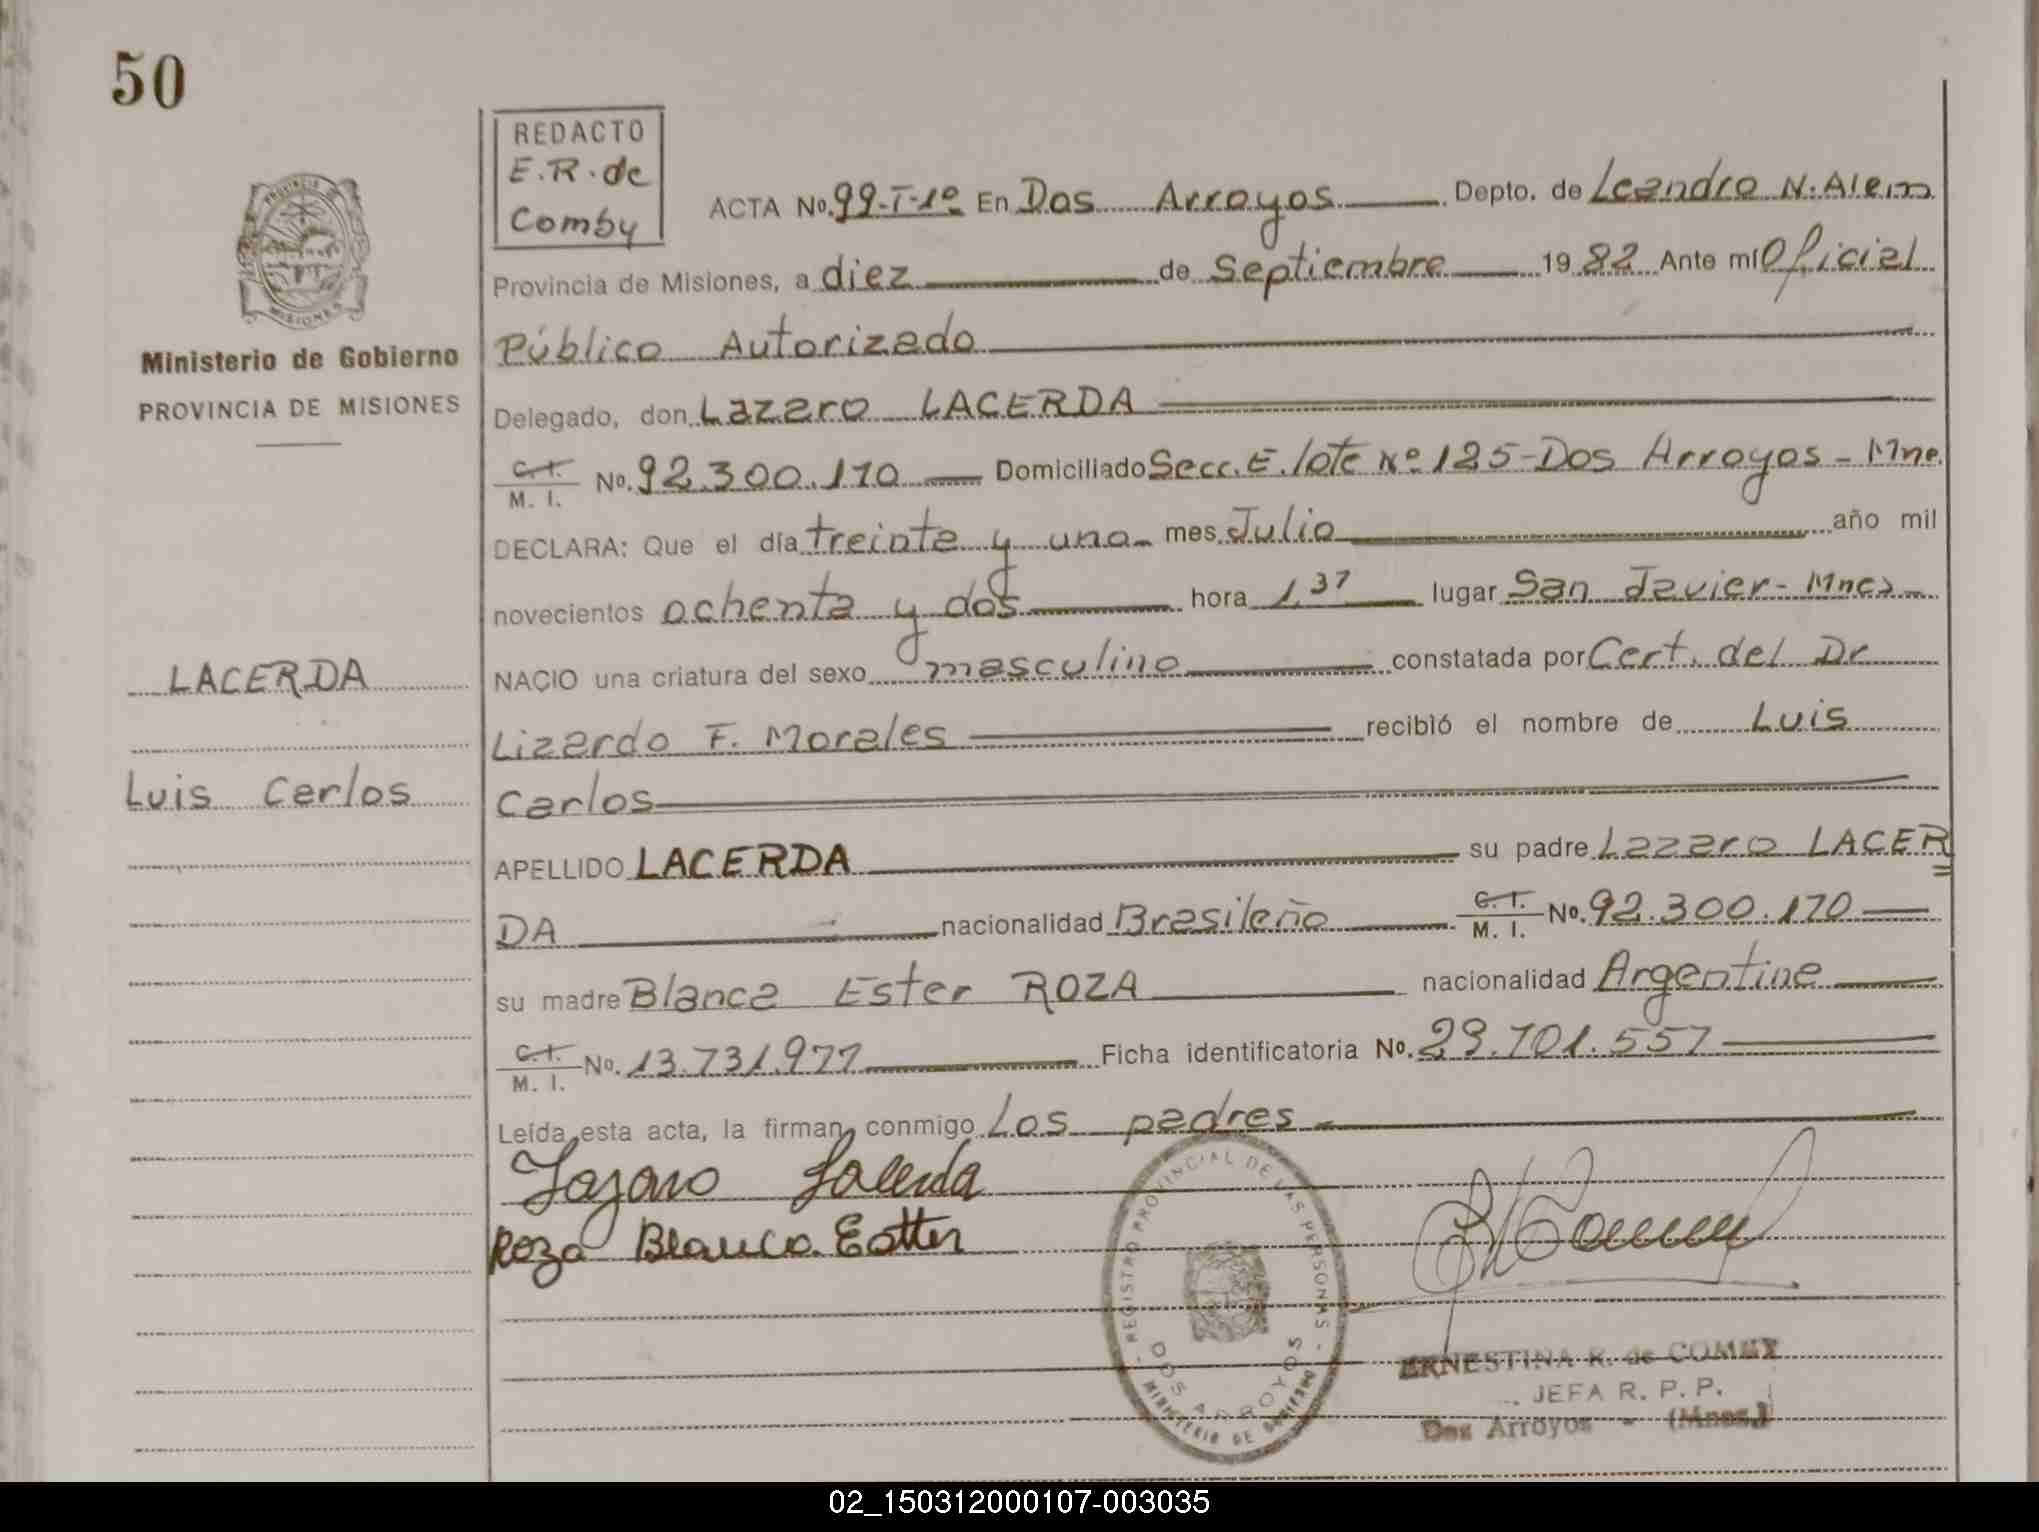 50
REDACTO
E.R. de
Comby
ACTA No. 99-T-1º En Dos Arroyos Depto. de Leandro N. Alem
Provincia de Misiones, a diez de Septiembre 1982 Ante mí Oficial
Público Autorizado
Delegado, don Lazaro LACERDA
C.I.
M. I. No. 92.300.170 Domiciliado Secc. E. lote Nº 125-Dos Arroyos - Mne.
DECLARA: Que el día treinta y uno mes Julio año mil
novecientos ochenta y dos hora 1,37 lugar San Javier - Mnes
NACIO una criatura del sexo masculino constatada por Cert. del Dr
Lizardo F. Morales recibió el nombre de Luis
Carlos
APELLIDO LACERDA su padre Lazaro LACER
DA nacionalidad Brasileño C.I.
M. I. No. 92.300.170
su madre Blanca Ester ROZA nacionalidad Argentina
C.I.
M. I. No. 13.731.977 Ficha identificatoria No. 29.701.557
Leída esta acta, la firman conmigo Los padres
Lazaro Lacerda
Roza Blanca Ester
Ministerio de Gobierno
PROVINCIA DE MISIONES
LACERDA
Luis Carlos
PROVINCIA
MISIONES
REGISTRO PROVINCIAL DE LAS PERSONAS
DOS ARROYOS
MINISTERIO DE GOBIERNO
ERNESTINA R. de COMBY
JEFA R. P. P.
Dos Arroyos - (Mnes.)
02_150312000107-003035